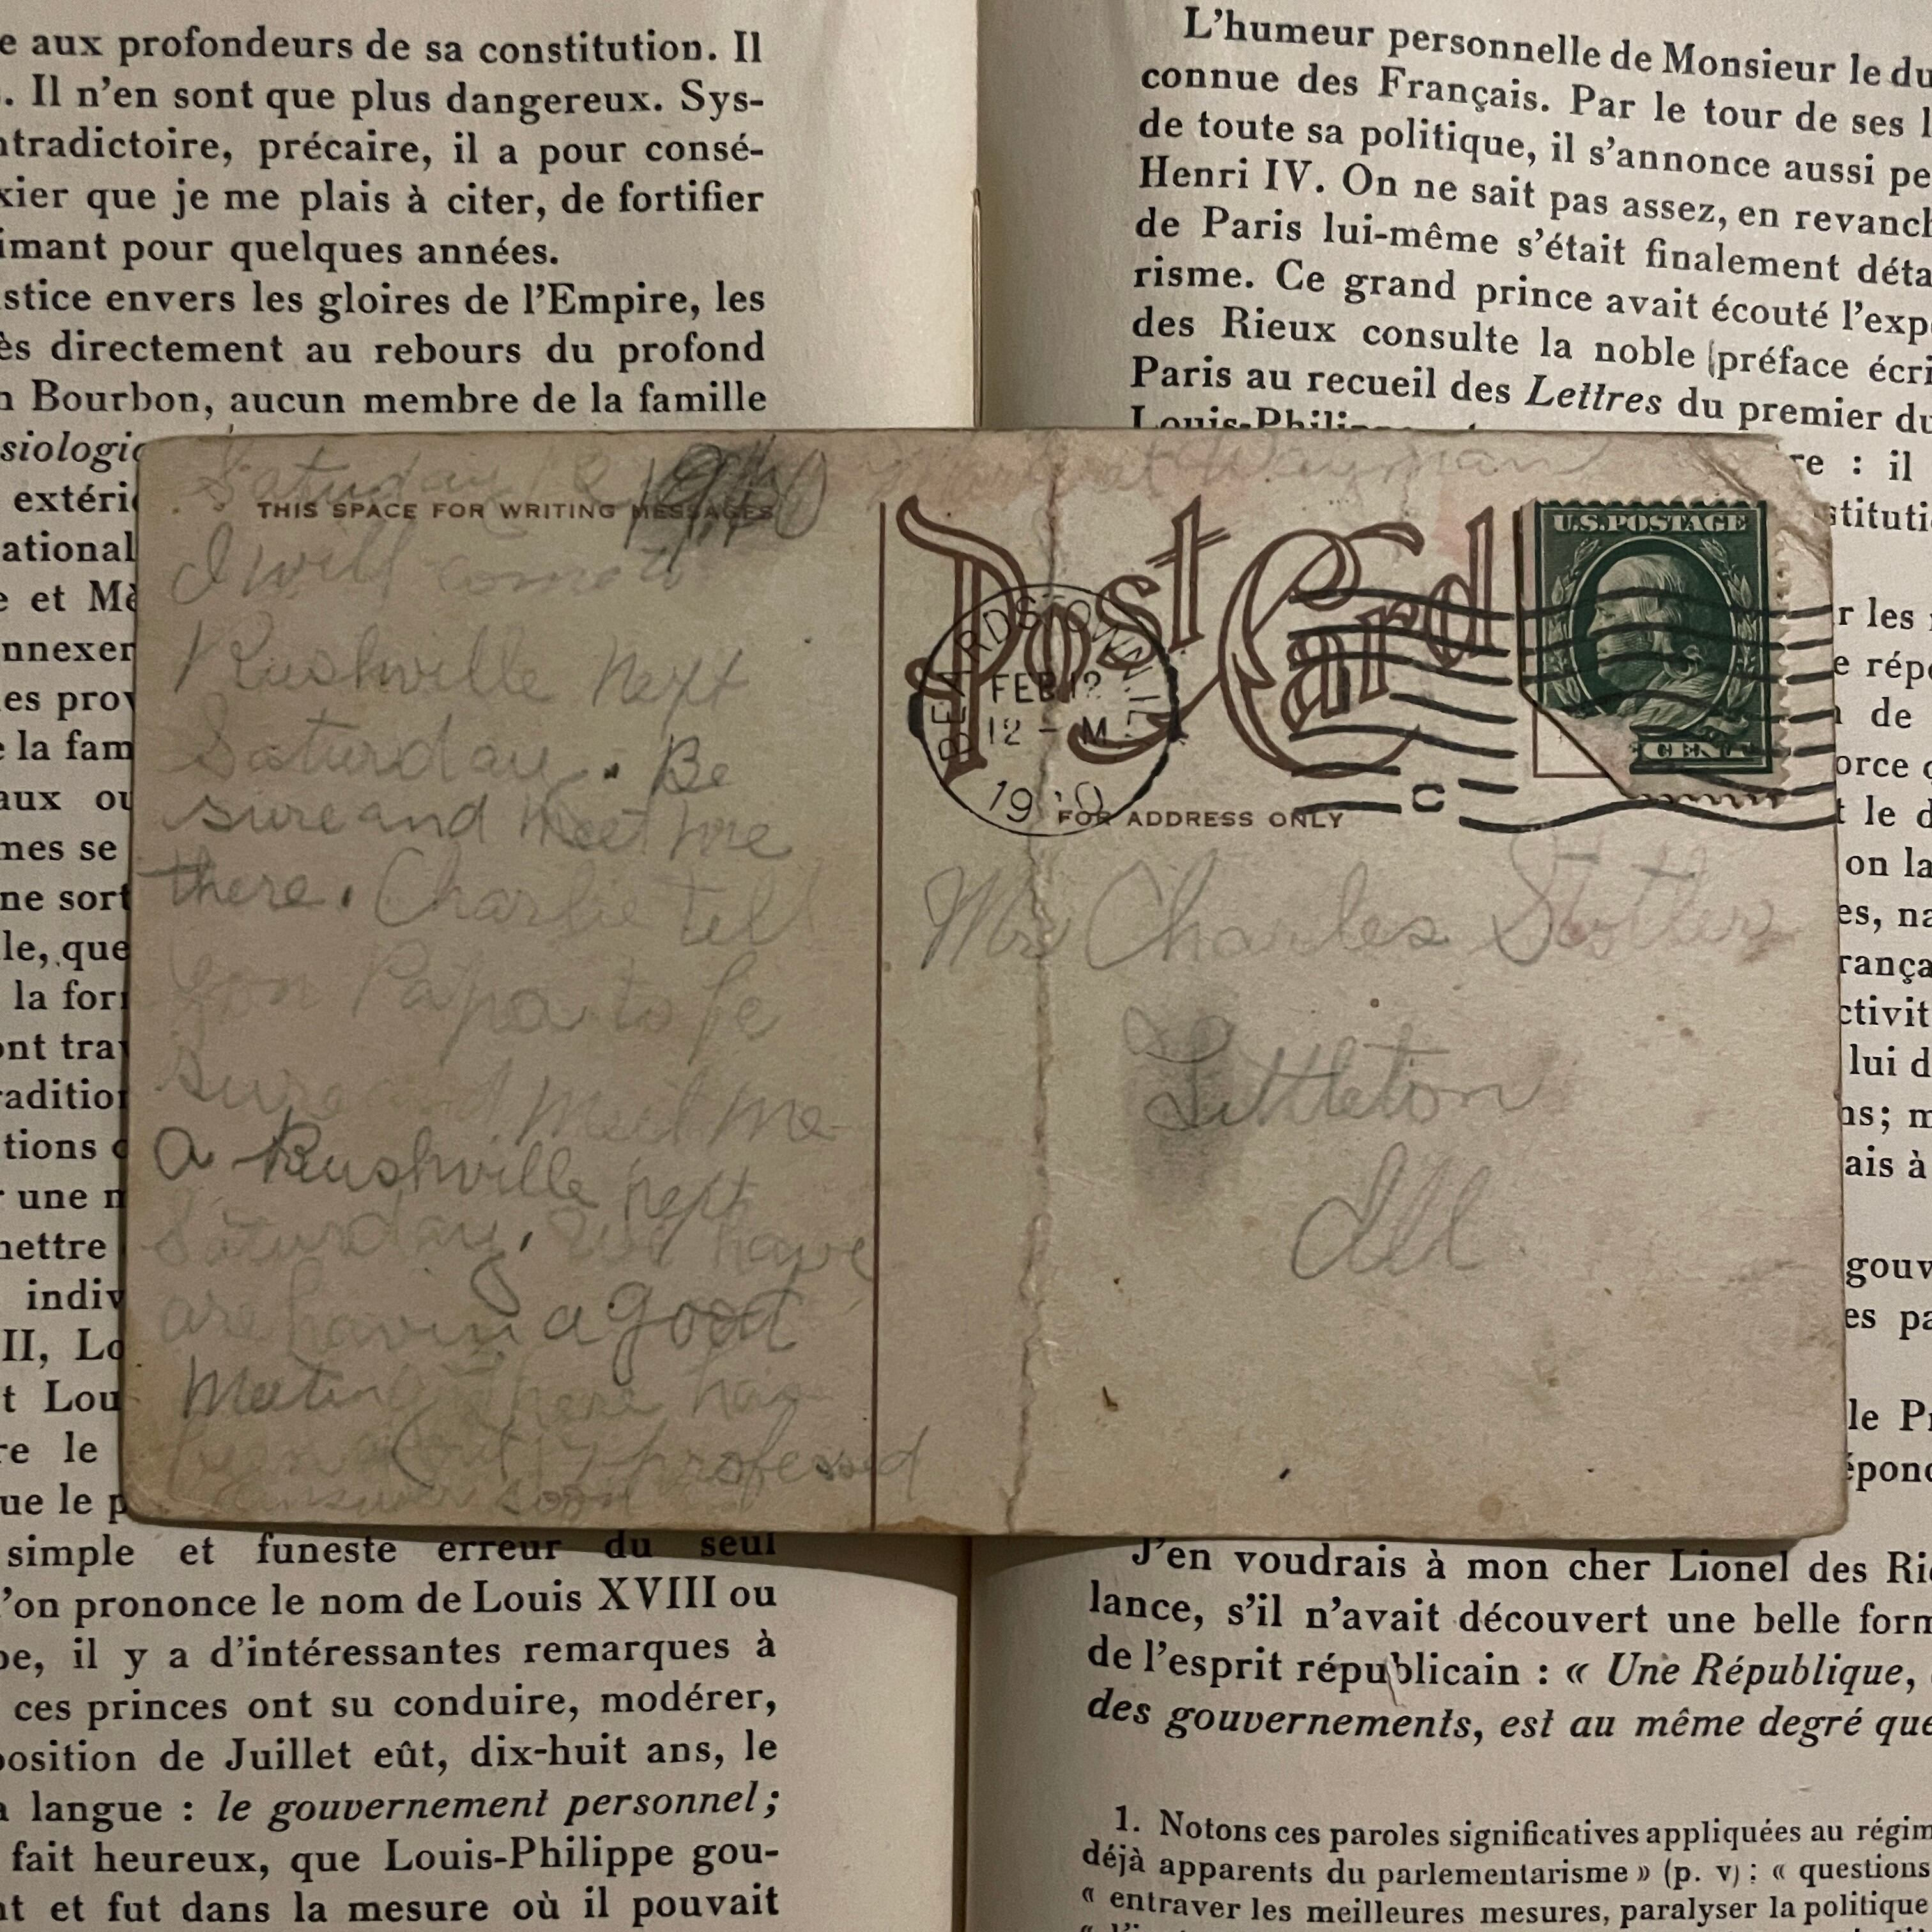 e aux profondeurs de sa constitution. Il
. Il n'en sont que plus dangereux. Sys-
ntradictoire, précaire, il a pour consé-
xier que je me plais à citer, de fortifier
imant pour quelques années.
stice envers les gloires de l'Empire, les
ès directement au rebours du profond
n Bourbon, aucun membre de la famille
siologic
extérie
ational
e et Mè
nnexer
les prov
e la fam
aux ou
mes se
ne sort
le, que
la for
ont tra
radition
tions
r une
mettre
indiv
II, Lo
t Lou
re le
ue le p
simple et funeste erreur du seul
'on prononce le nom de Louis XVIII ou
pe, il y a d'intéressantes remarques à
ces princes ont su conduire, modérer,
position de Juillet eût, dix-huit ans, le
a langue : le gouvernement personnel;
fait heureux, que Louis-Philippe gou-
nt et fut dans la mesure où il pouvait
Saturday 1910
THIS SPACE FOR WRITING MESSAGES
I will come
Rushville next
Saturday. Be
sure and meet me
there. Charlie tell
Papa to be
sure and meet me
a Rushville next
Saturday. We have
are having a good
Meeting There has
been about 7 professed
answer soon
Margaret Wayman
Post Card
U.S. POSTAGE
CENT
BEARDSTOWN, ILL.
FEB 12
12 - M
1910
C
FOR ADDRESS ONLY
Mr Charles Stotler
Littleton
Ill
L'humeur personnelle de Monsieur le du
connue des Français. Par le tour de ses l
de toute sa politique, il s'annonce aussi pe
Henri IV. On ne sait pas assez, en revanch
de Paris lui-même s'était finalement déta
risme. Ce grand prince avait écouté l'exp
des Rieux consulte la noble préface écri
Paris au recueil des Lettres du premier du
Louis-Philippe
re : il
stituti
r les
e rép
de
orce
t le d
on la
es, na
rança
ctivit
lui d
ns; m
ais à
gouv
es pa
le Pr
épond
J'en voudrais à mon cher Lionel des Rie
lance, s'il n'avait découvert une belle form
de l'esprit républicain : « Une République,
des gouvernements, est au même degré que
1. Notons ces paroles significatives appliquées au régim
déjà apparents du parlementarisme » (p. v) : « questions
« entraver les meilleures mesures, paralyser la politique